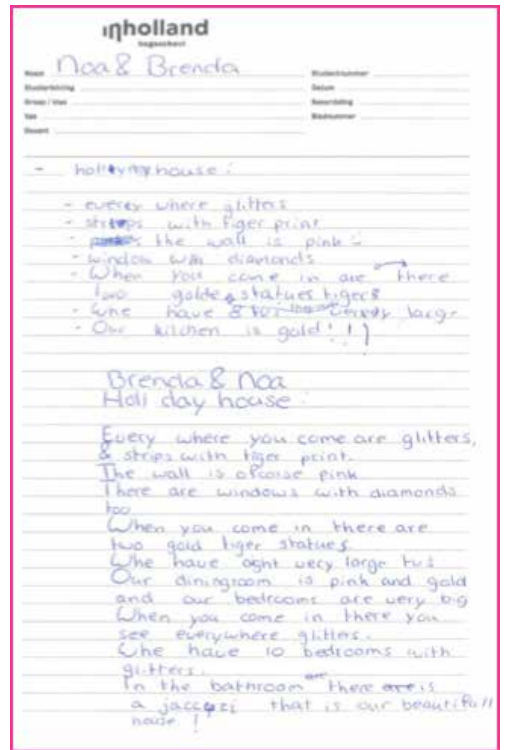 inholland
hogeschool
Naam Noa & Brenda Studentnummer
Studierichting Datum
Groep / klas Beoordeling
Vak Bladnummer
Docent
- holidayhouse :
- everey where glitters
- strips with tiger print
- the wall is pink :
- window with diamonds
- When you come in are there
two golde statues tigers
- Whe have 8 very large
- Our kitchen is gold!!)
Brenda & Noa
Holi day house :
Every where you come are glitters,
& strips with tiger print.
The wall is ofcoise pink
There are windows with diamonds
too
When you come in there are
two gold tiger statues.
Whe have aght very large tvs
Our diningroom is pink and gold
and our bedrooms are very big
When you come in there you
see everywhere glitters.
Whe have 10 bedrooms with
glitters.
In the bathroom there is
a jaccuzi that is our beautifull
house !